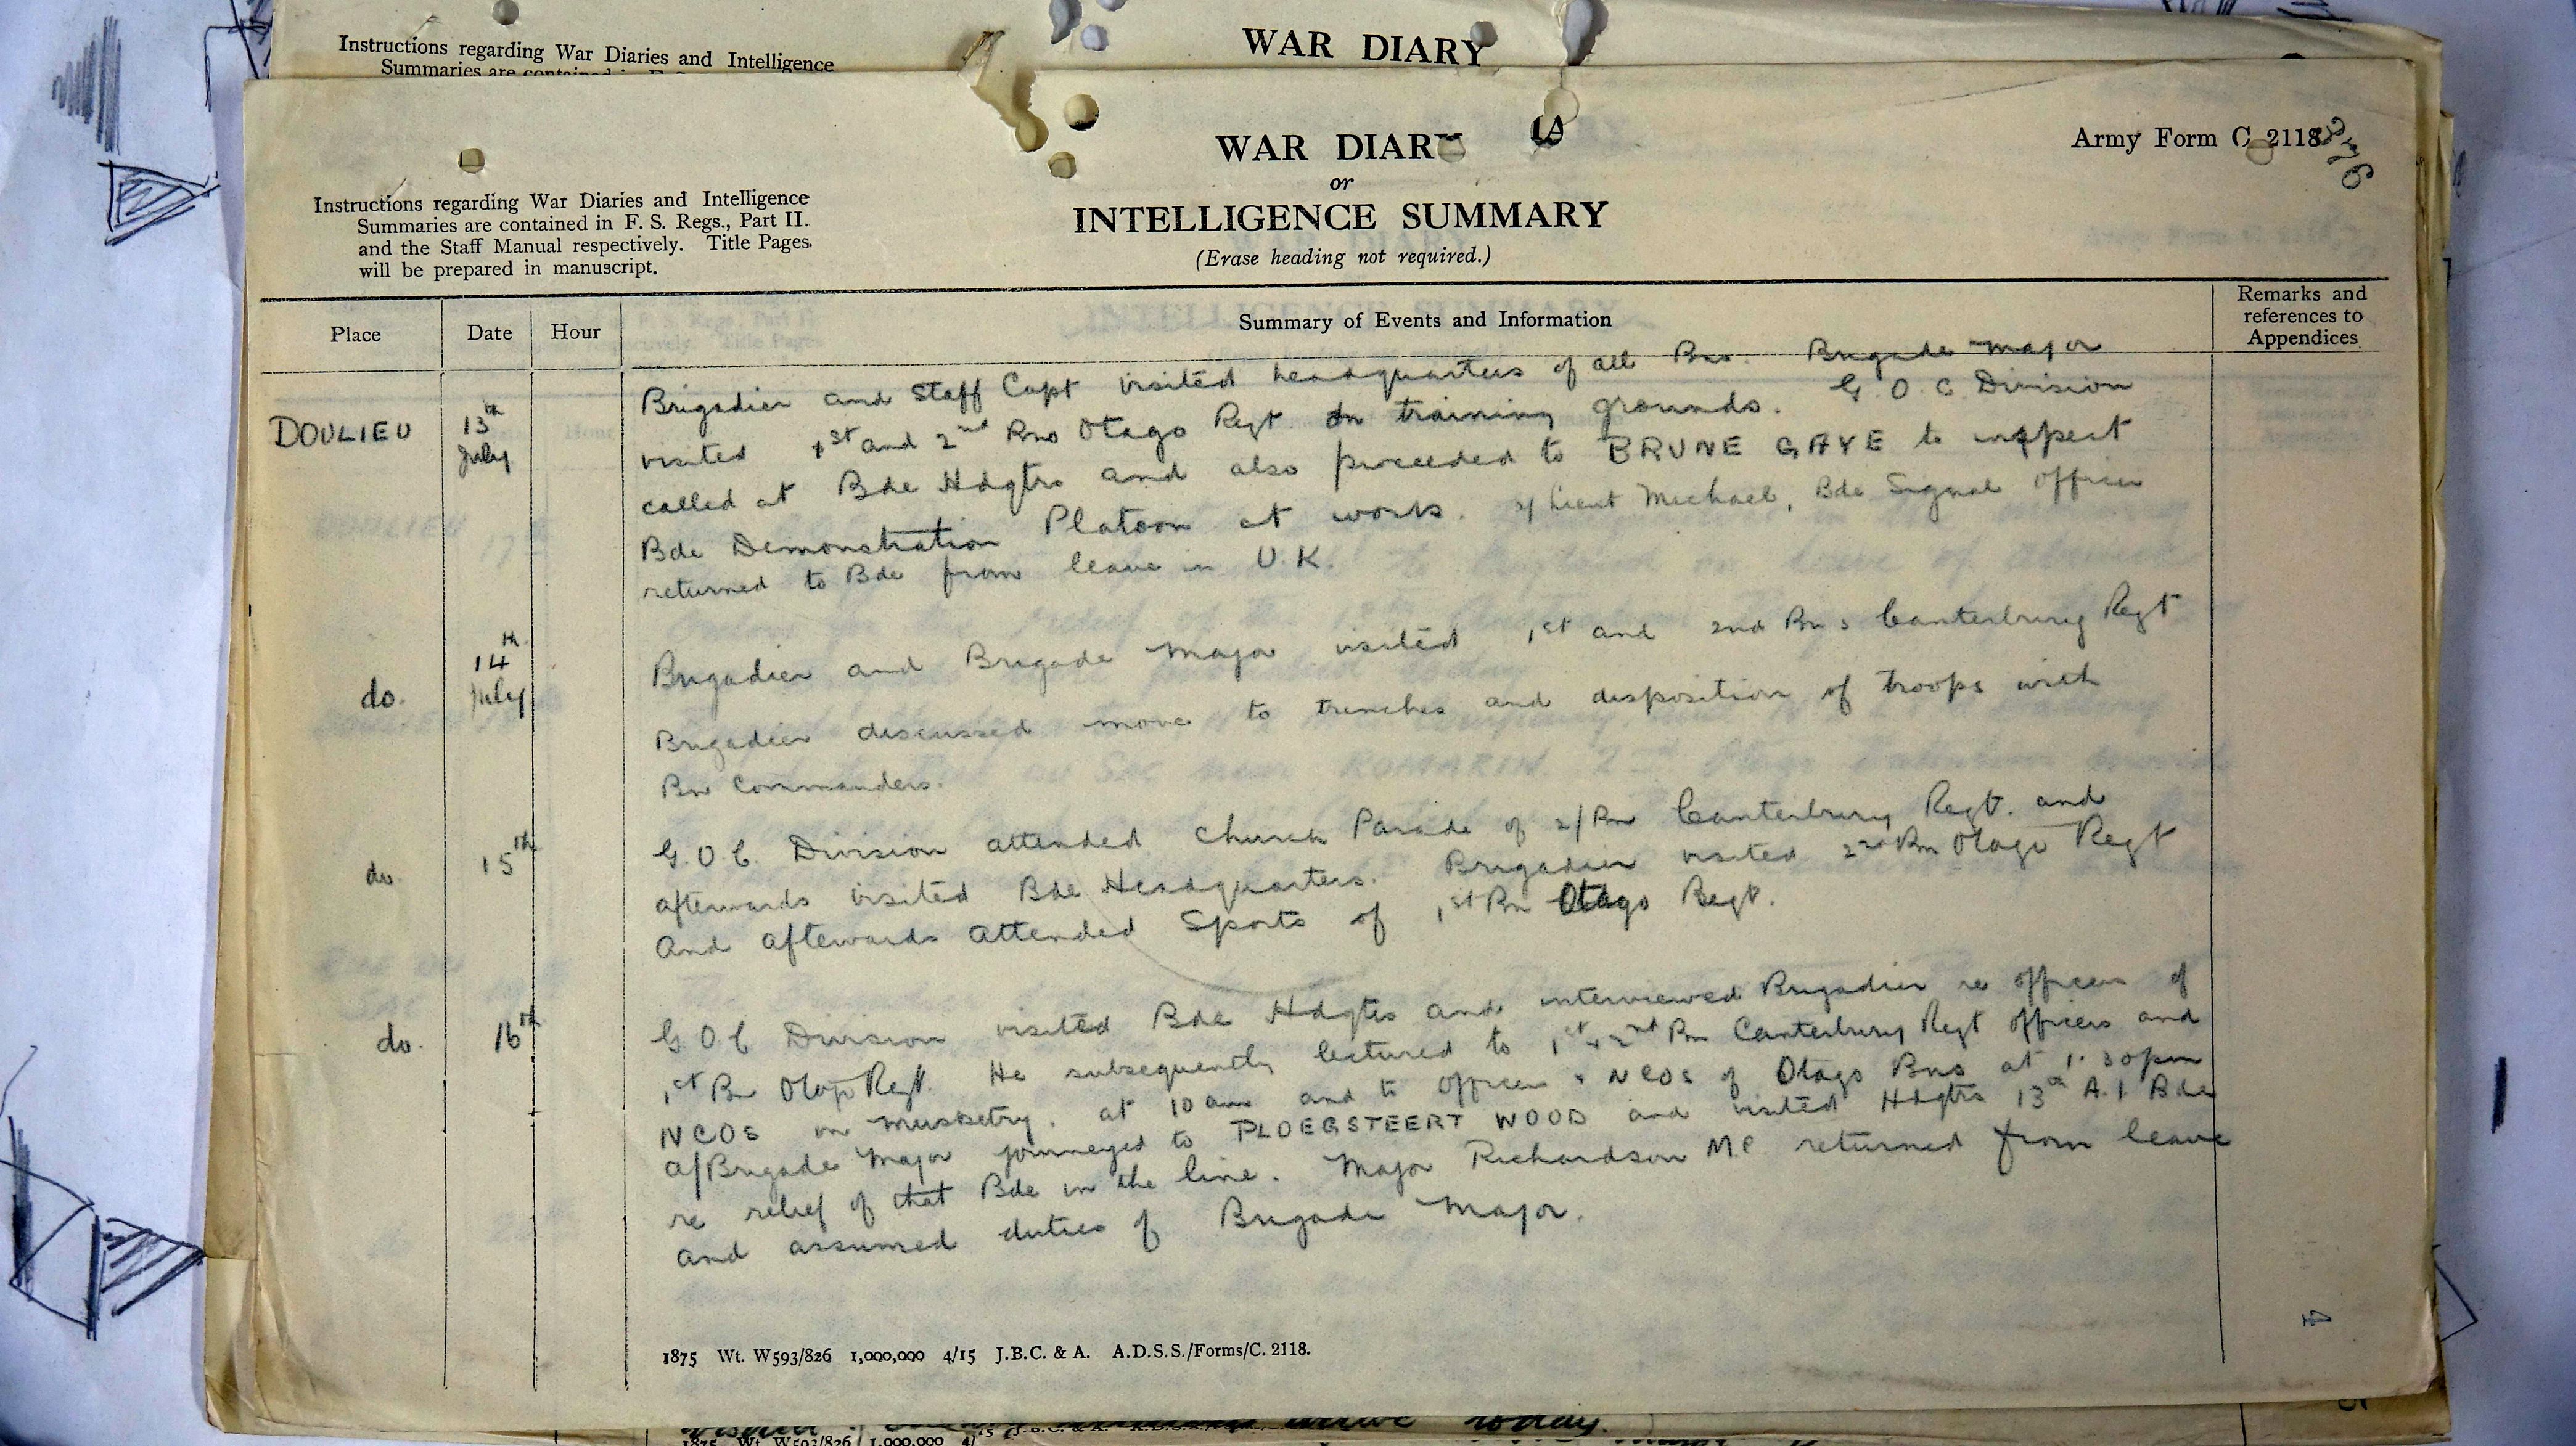 Instructions regarding War Diaries and Intelligence
Summaries are contained in F. S.
WAR DIARY
WAR DIARY
or
INTELLIGENCE SUMMARY
(Erase heading not required.)
Army Form C 2118
Instructions regarding War Diaries and Intelligence
Summaries are contained in F. S. Regs., Part II.
and the Staff Manual respectively. Title Pages
will be prepared in manuscript.
Place Date Hour Summary of Events and Information Remarks and references to Appendices
DOULIEU 13th July Brigadier and Staff Capt visited headquarters of all Bns. Brigade Major
visited 1st and 2nd Bns Otago Regt. on training grounds. G.O.C. Division
called at Bde Hdqtrs and also proceeded to BRUNE GAYE to inspect
Bde Demonstration Platoon at work. 2/Lieut Michael, Bde Signal Officer
returned to Bde from leave in U.K.
do. 14th July Brigadier and Brigade Major visited 1st and 2nd Bns Canterbury Regt
Brigadier discussed move to trenches and disposition of troops with
Bn Commanders.
do. 15th G.O.C. Division attended Church Parade of 2/Bn Canterbury Regt. and
afterwards visited Bde Headquarters. Brigadier visited 2nd Bn Otago Regt
and afterwards attended Sports of 1st Bn Otago Regt.
do. 16th G.O.C Division visited Bde Hdqtrs and interviewed Brigadier re officers of
1st Bn Otago Regt. He subsequently lectured to 1st & 2nd Bn Canterbury Regt officers and
NCOs on musketry. at 10 am and to officers & NCOs of Otago Bns at 1.30pm
a/Brigade Major journeyed to PLOEGSTEERT WOOD and visited Hdqtrs 13th A.I. Bde
re relief of that Bde in the line. Major Richardson M.C. returned from leave
and assumed duties of Brigade Major.
4
1875 Wt. W593/826 1,000,000 4/15 J.B.C. & A. A.D.S.S./Forms/C. 2118.
today.
1875 Wt. W593/826 1,000,000